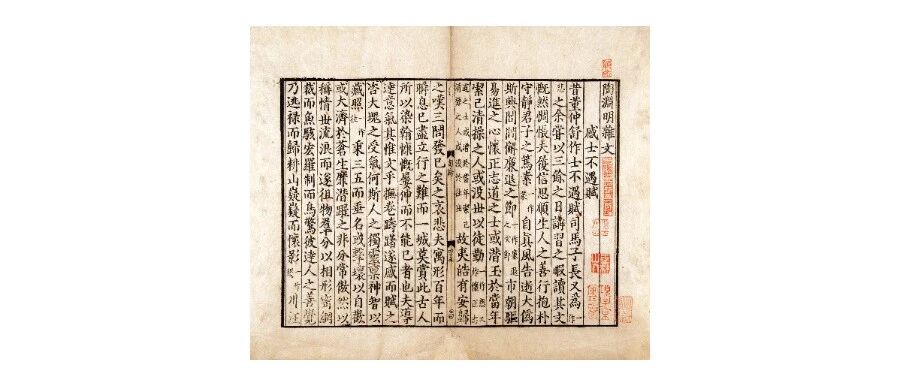 陶淵明雜文
感士不遇賦
昔董仲舒作士不遇賦司馬子長又為一作
悲之余嘗以三餘之日講習之暇讀其文
旣然惆悵夫履信思順生人之善行抱朴
守靜君子之篤素自真風告逝大偽
斯興閭閻懈廉退之節市朝驅
易進之心懷正志道之士或潛玉於當年
潔己清操之人或沒世以徒勤
故夷皓有安歸
之嘆三閭發已矣之哀悲夫寓形百年而
瞬息已盡立行之難而一城莫賞此古人
所以染翰慷慨屢伸而不能已者也夫導
達意氣其惟文乎撫卷躊躇遂感而賦之
咨大塊之受氣何斯人之獨靈稟神智以
藏照秉三五而垂名或擊壤以自歡
或大濟於蒼生靡潛躍之非分常傲然以
稱情世流浪而遂徂物羣分以相形密網
裁而魚駭宏羅制而鳥驚彼達人之善覺
乃逃祿而歸耕山嶷嶷而懷影川汪